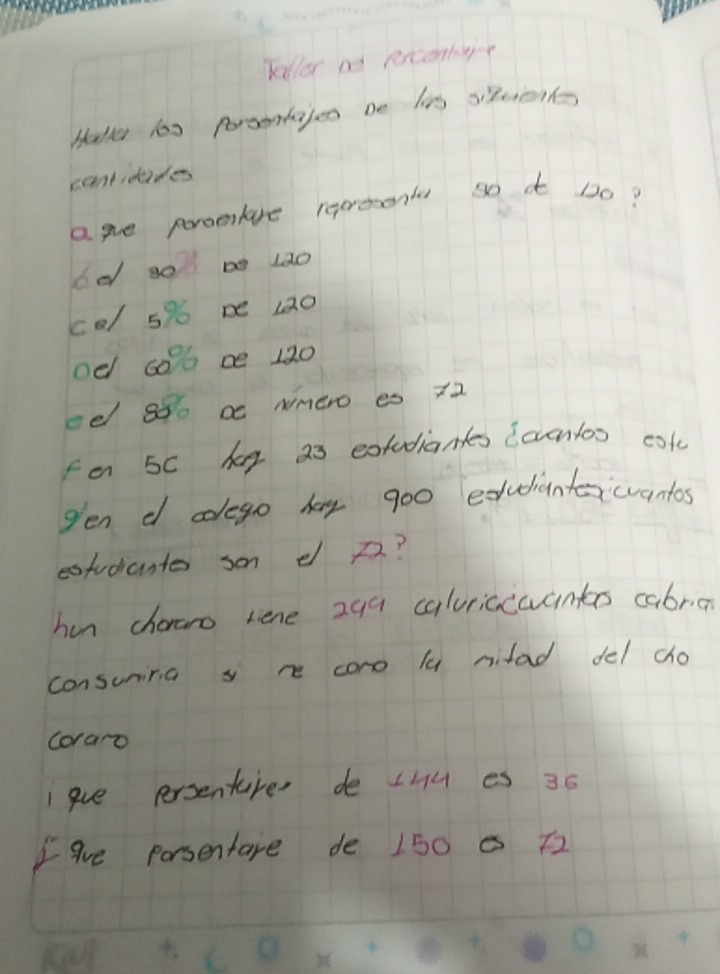 Taller de Porcentaje
Haller los Porsentajes De las siguientes
cantidades
a que porcentaye representa 90 de 120?
b el 30% De 120
c el 5% De 120
D el 60% De 120
e el 80% De Número es 72
F en 5C hay 23 estudiantes ¿cuantos estu
g en el colego hay 900 estudiantes ¿cuantos
estudiantes son el 72?
h un chocoro tiene 299 caluria ¿cuantas cabria
consumiria si me como la mitad del cho
cororo
i que persentaye de 144 es 36
j que porsentaye de 150 es 72